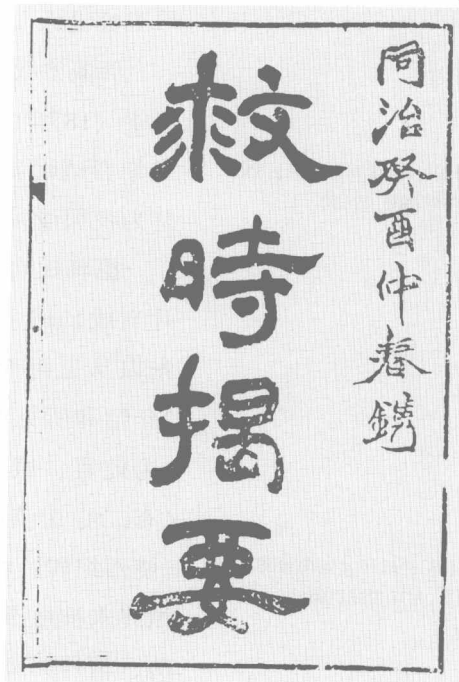 同治癸酉仲春鐫
救時揭要